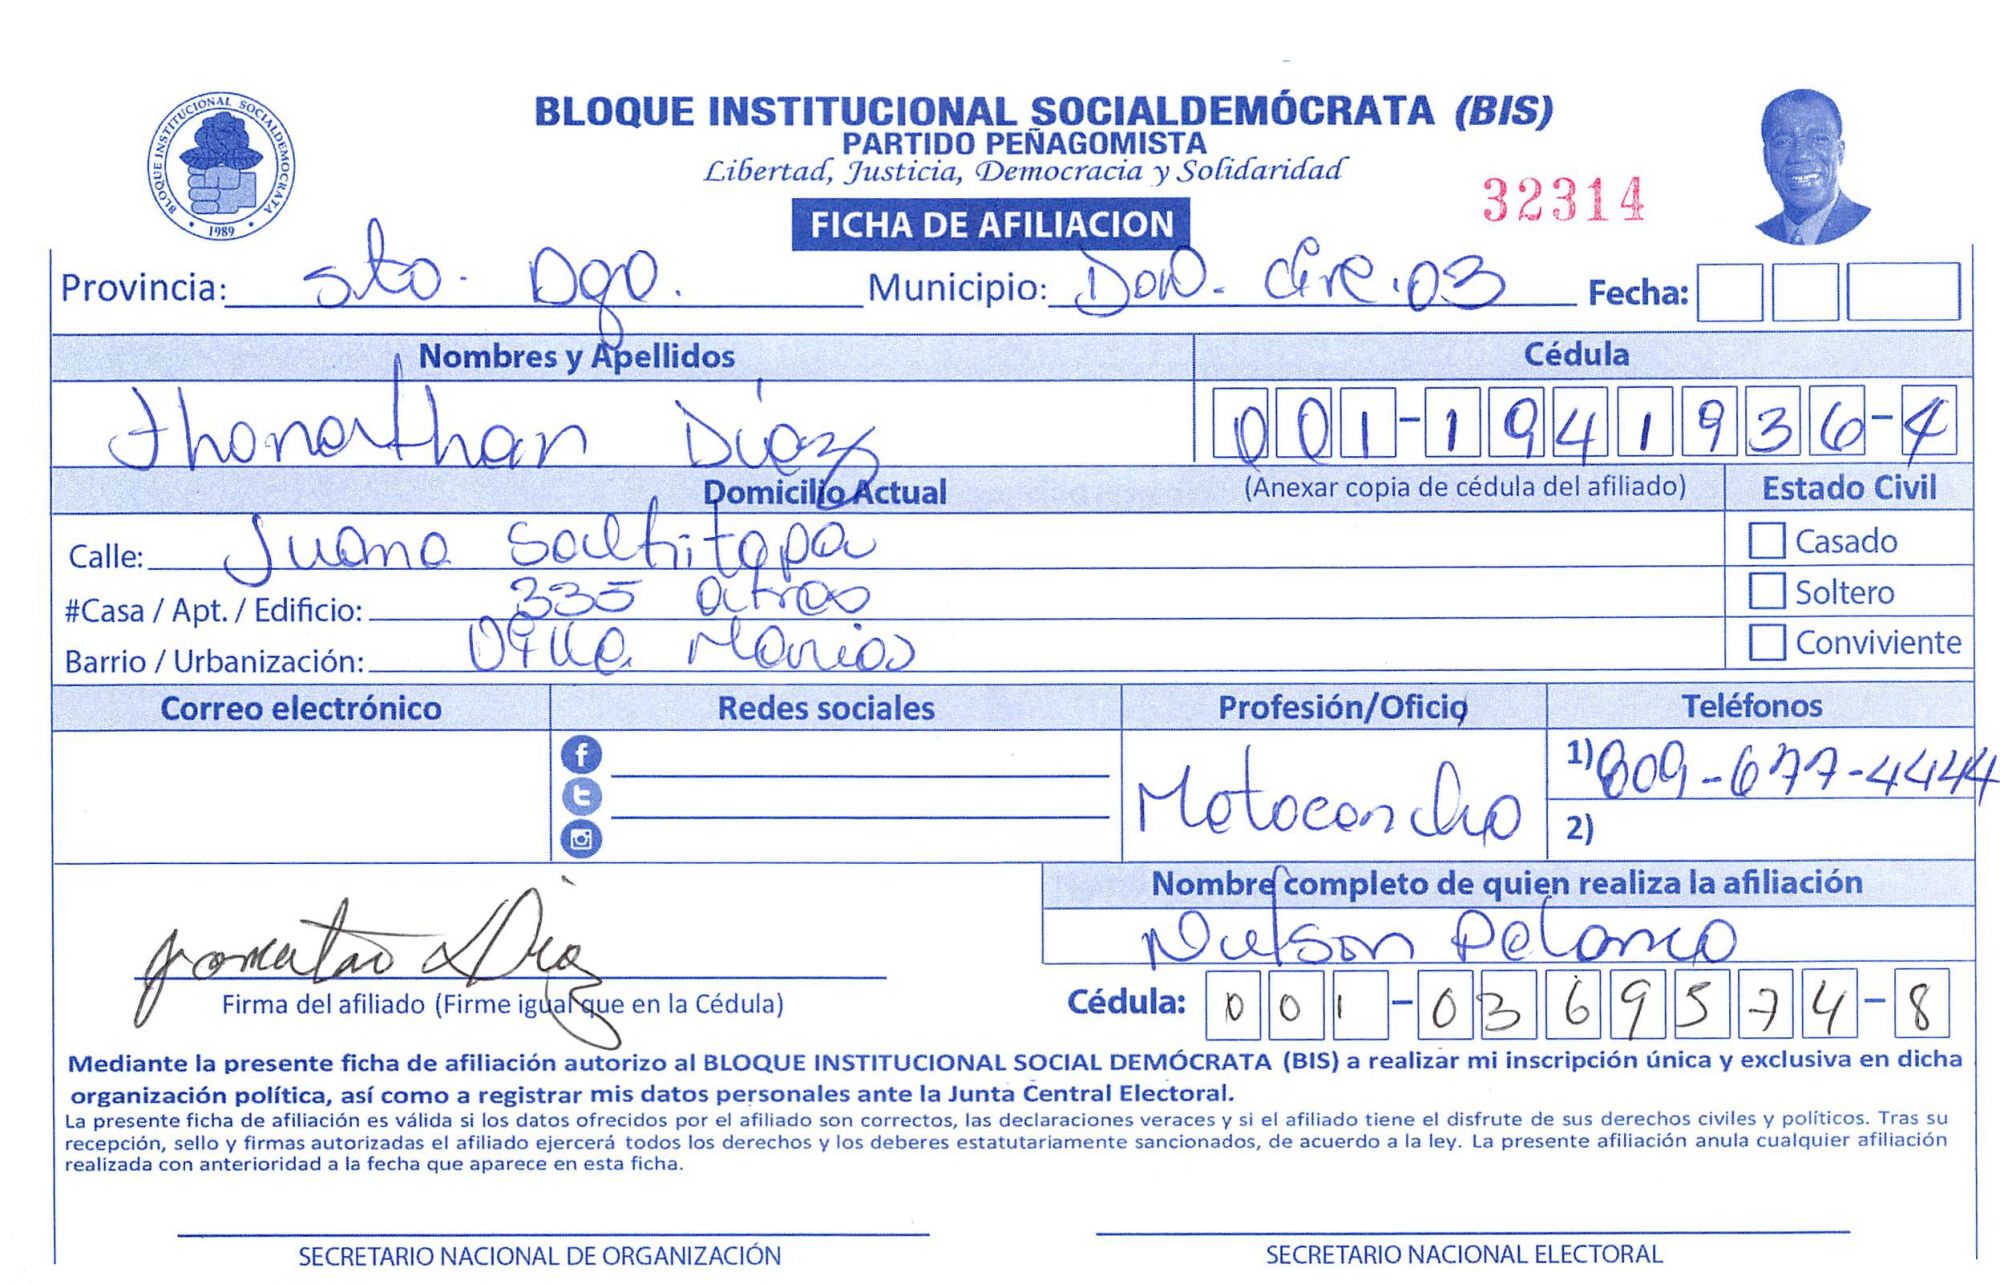 BLOQUE INSTITUCIONAL SOCIALDEMOCRATA
1989
BLOQUE INSTITUCIONAL SOCIALDEMÓCRATA (BIS)
PARTIDO PEÑAGOMISTA
Libertad, Justicia, Democracia y Solidaridad
32314
FICHA DE AFILIACION
Provincia: Sto. Dgo. Municipio: DoN. Circ. 03 Fecha:
Nombres y Apellidos Cédula
Jhonathan Diaz 001-1941936-4
Domicilio Actual (Anexar copia de cédula del afiliado) Estado Civil
Calle: Juana Saltitopa Casado
#Casa / Apt. / Edificio: 335 atras Soltero
Barrio / Urbanización: Villa Marias Conviviente
Correo electrónico Redes sociales Profesión/Oficio Teléfonos
Motoconcho 1) 809-677-4444
2)
Nombre completo de quien realiza la afiliación
Nelson Polanco
Diaz
Firma del afiliado (Firme igual que en la Cédula) Cédula: 001-0369574-8
Mediante la presente ficha de afiliación autorizo al BLOQUE INSTITUCIONAL SOCIAL DEMÓCRATA (BIS) a realizar mi inscripción única y exclusiva en dicha
organización política, así como a registrar mis datos personales ante la Junta Central Electoral.
La presente ficha de afiliación es válida si los datos ofrecidos por el afiliado son correctos, las declaraciones veraces y si el afiliado tiene el disfrute de sus derechos civiles y políticos. Tras su
recepción, sello y firmas autorizadas el afiliado ejercerá todos los derechos y los deberes estatutariamente sancionados, de acuerdo a la ley. La presente afiliación anula cualquier afiliación
realizada con anterioridad a la fecha que aparece en esta ficha.
SECRETARIO NACIONAL DE ORGANIZACIÓN SECRETARIO NACIONAL ELECTORAL